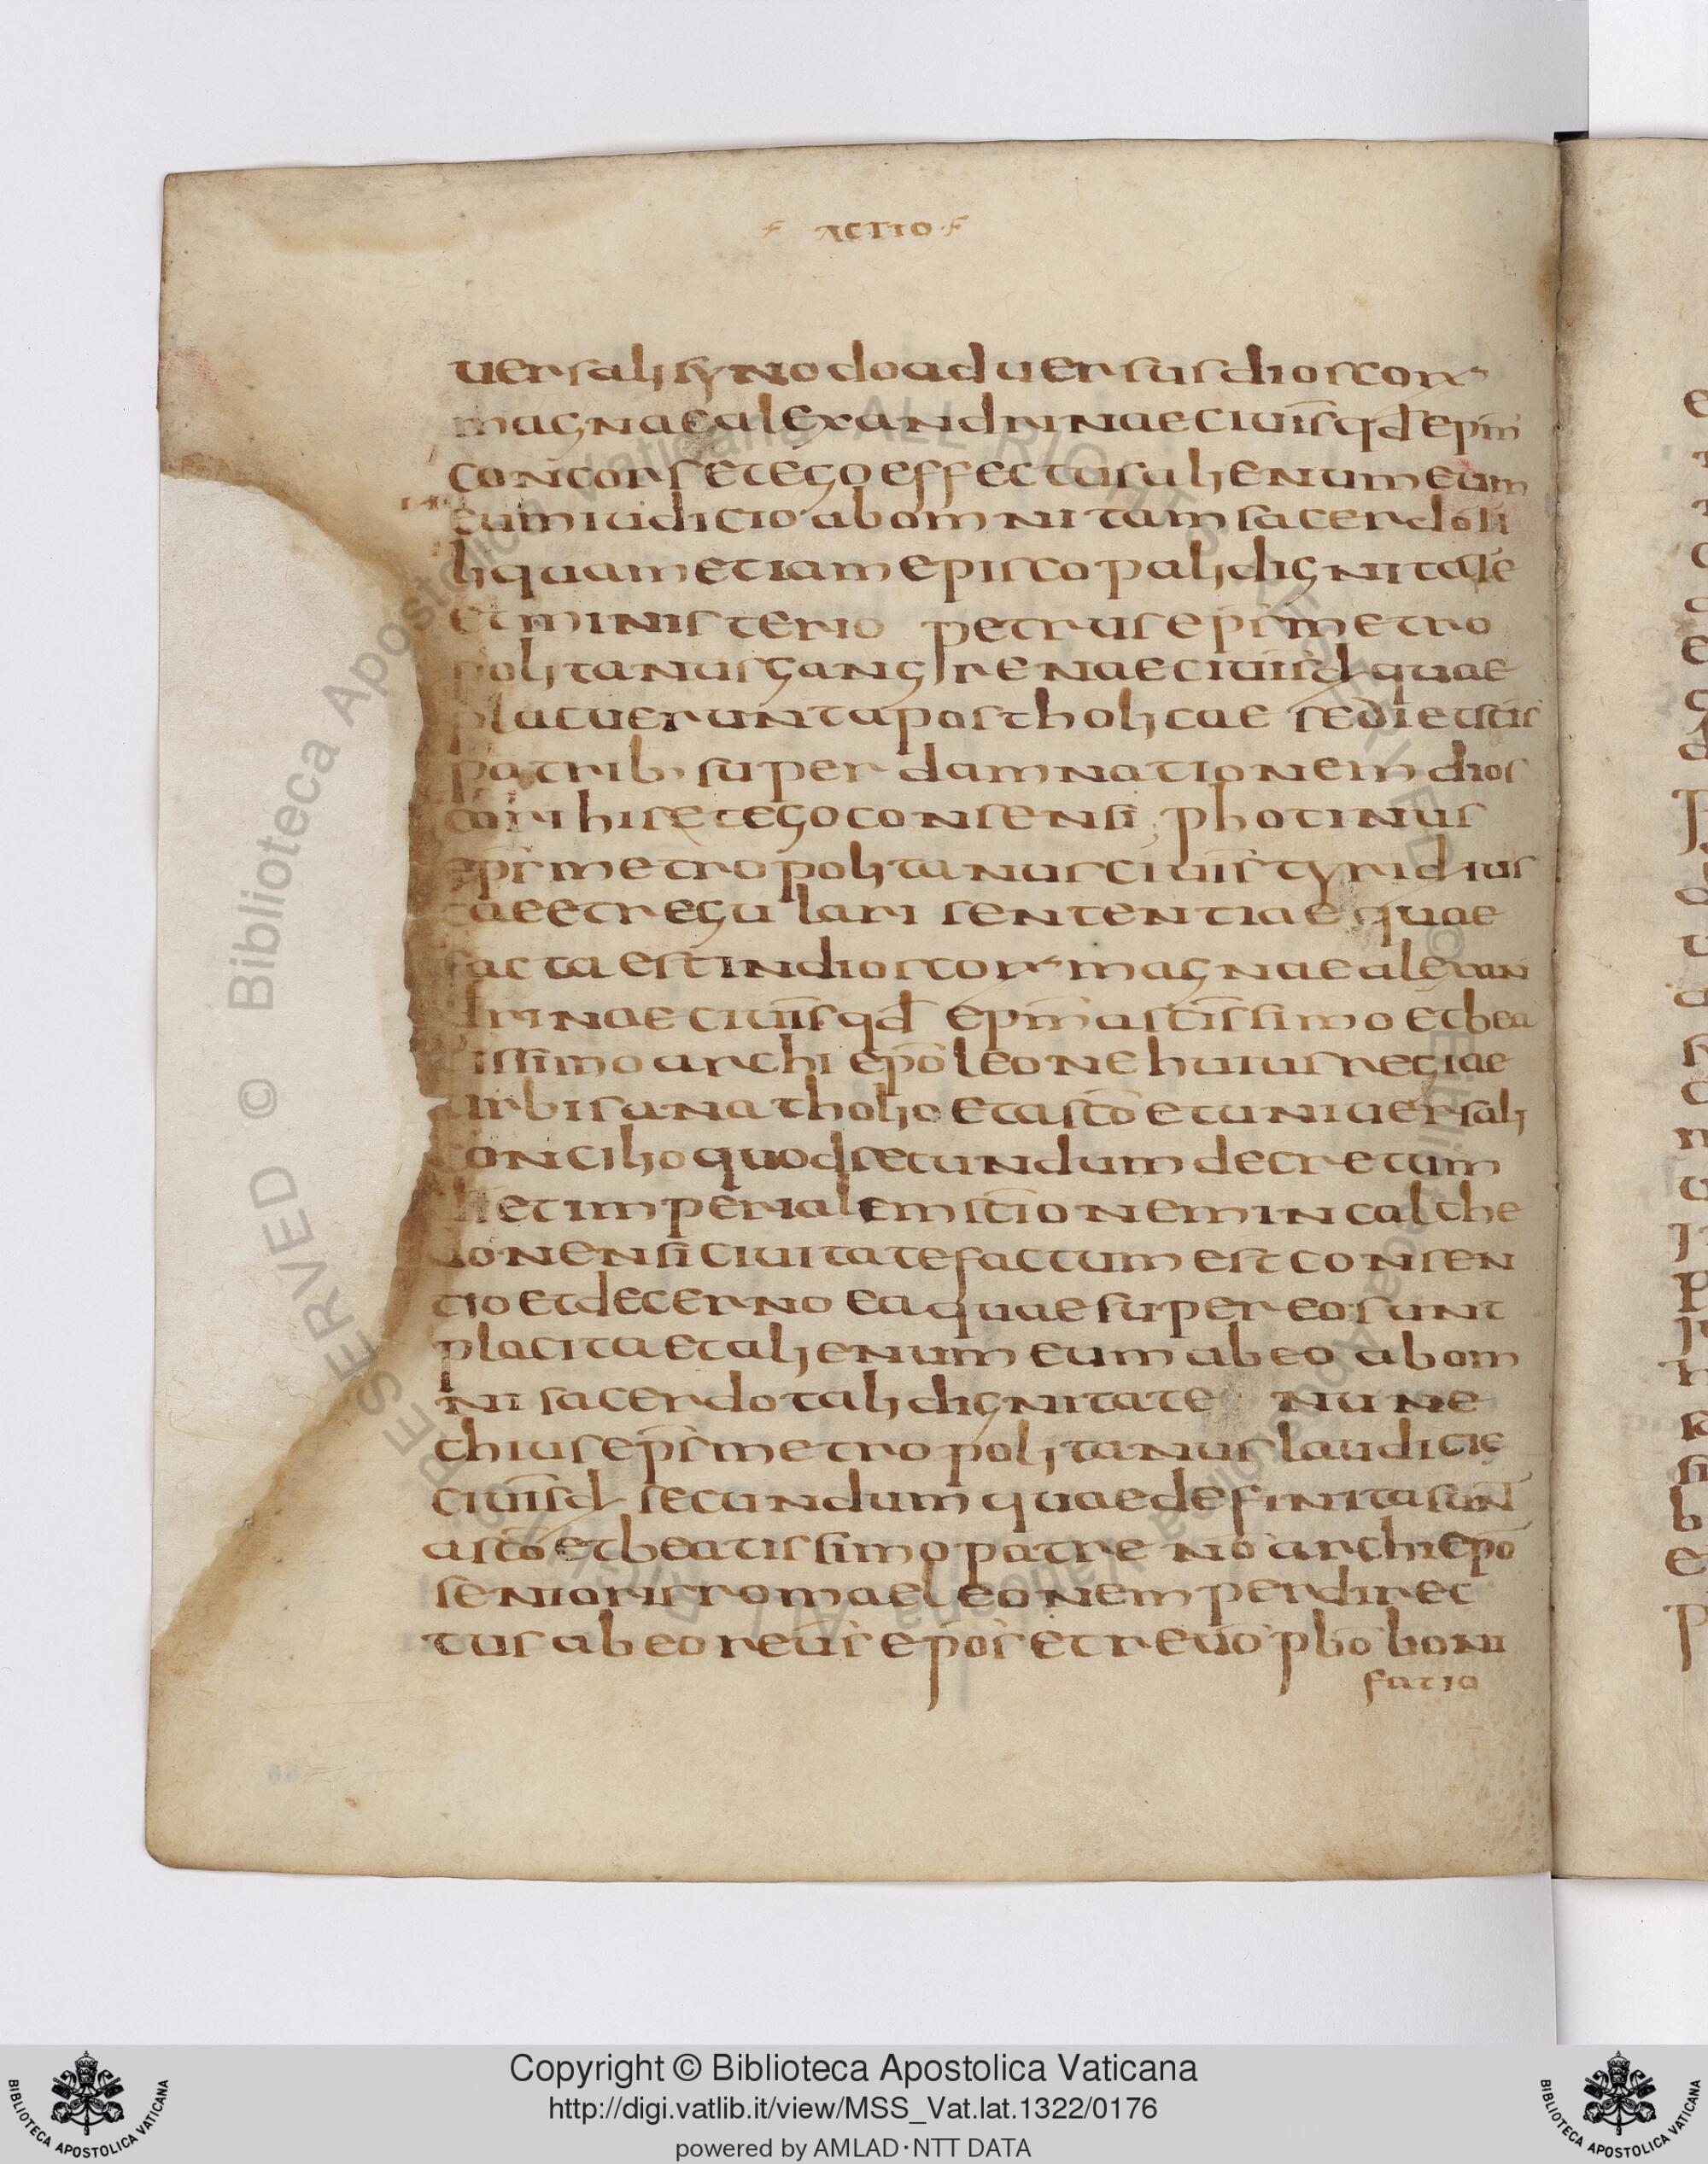 ACTIO
uersali synodo aduersus dioscorum
magnae alexandrinae ciuīs qd̄ epm̄
concors et ego effectus alienum eum
cum iudicio ab omni tam sacerdota
li quam etiam episcopali dignitate
et ministerio petrus epīs metro
politanus gangrenae ciuīs d quae
placuerunt apostholicae sedi et scīs
patrib; super damnationem dios
cori his et ego consensi photinus
epīs metropolitanus ciuīs tyri d ius
tae et regulari sententiae quae
facta est in dioscorum magnae alexan
drinae ciuīs qd̄ epm̄ a scīssimo et bea
tissimo archi epō leone huius regiae
urbis anatholio et a scō et uniuersali
concilio quod secundum decretum
et imperialem scīonem in calche
donensi ciuitate factum est consen
tio et decerno ea quae super eo sunt
placita et alienum eum abeo ab om
ni sacerdotali dignitate nune
chius epīs metropolitanus laudicię
ciuīs d secundum quae definita sunt
a scō et beatissimo patre nō archiepō
senioris romae leonem per direc
tus ab eo reūs epōs et reuō pbō boni
fatio
Copyright © Biblioteca Apostolica Vaticana
http://digi.vatlib.it/view/MSS_Vat.lat.1322/0176
powered by AMLAD·NTT DATA
BIBLIOTECA APOSTOLICA VATICANA
BIBLIOTECA APOSTOLICA VATICANA
© Biblioteca Apostolica Vaticana ALL RIGHTS RESERVED
© Biblioteca Apostolica Vaticana ALL RIGHTS RESERVED